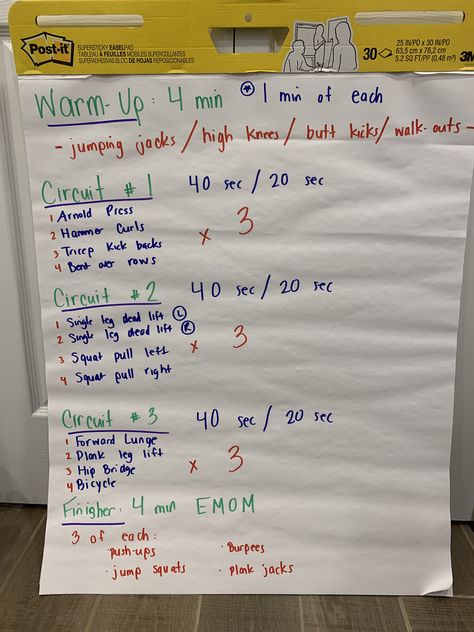 Post-it
SUPERSTICKY EASEL PAD
TABLEAU À FEUILLETS MOBILES SUPERCOLLANTES
SUPERADHESIVAS BLOC DE HOJAS REPOSICIONABLES
30
25 IN/PO x 30 IN/PO
63,5 cm x 76,2 cm
5.2 SQ FT/PP (0,48 m²)
3M
Warm-Up: 4 min * 1 min of each
- jumping jacks / high knees / butt kicks / walk-outs -
Circuit #1 40 sec / 20 sec
1 Arnold Press
2 Hammer Curls
3 Tricep Kick backs
4 Bent over rows
x 3
Circuit #2 40 sec / 20 sec
1 Single leg dead lift L
2 Single leg dead lift R
3 Squat pull left
4 Squat pull right
x 3
Circuit #3 40 sec / 20 sec
1 Forward Lunge
2 Plank leg lift
3 Hip Bridge
4 Bicycle
x 3
Finisher: 4 min EMOM
3 of each:
· Push-ups
· jump squats
· Burpees
· plank jacks